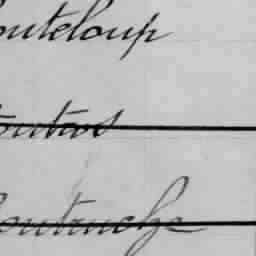 outeloup
outas
outruche